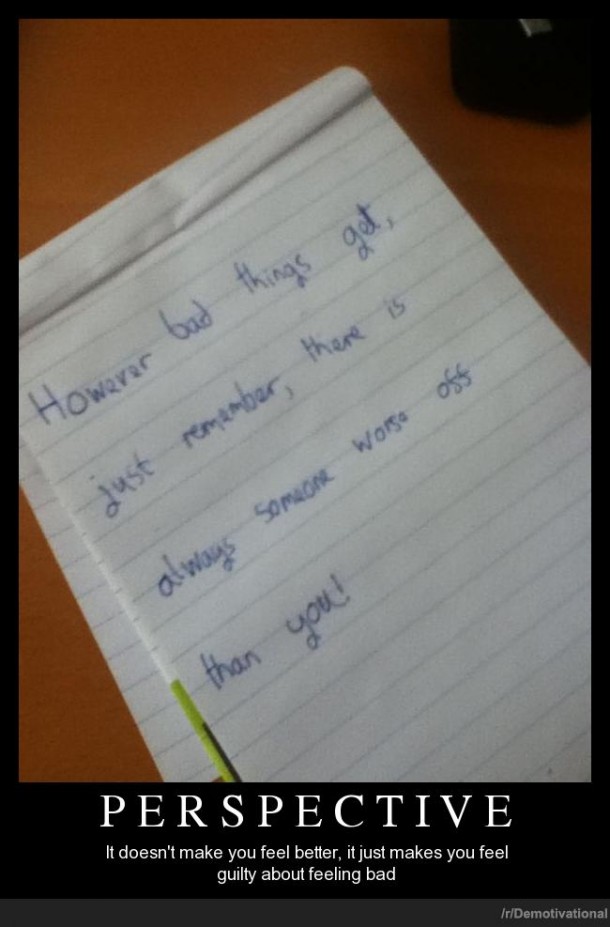 However bad things get,
just remember, there is
always someone worse off
than you!
PERSPECTIVE
It doesn't make you feel better, it just makes you feel
guilty about feeling bad
/r/Demotivational